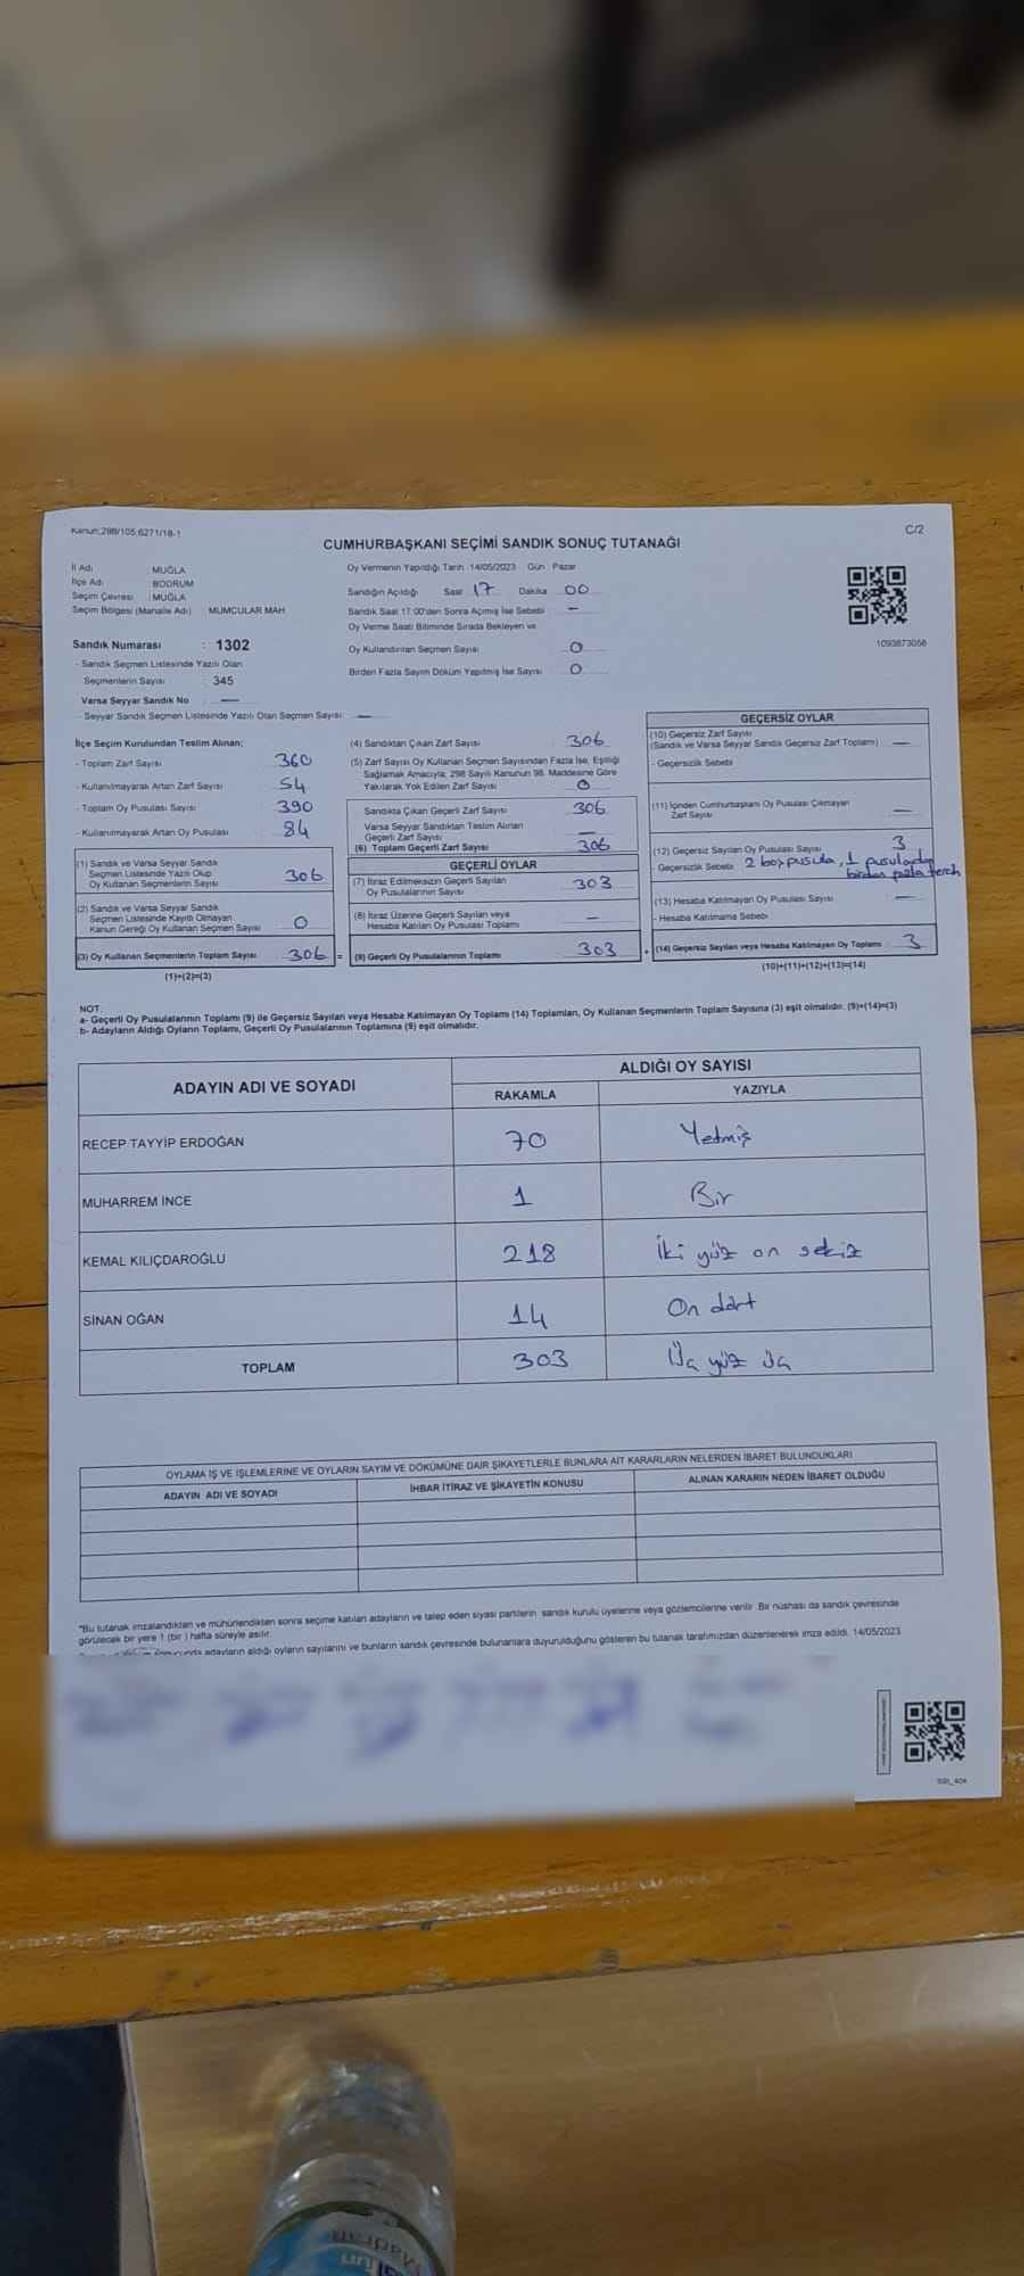 Kanun:298/105,6271/18-1
C/2
CUMHURBAŞKANI SEÇİMİ SANDIK SONUÇ TUTANAĞI
İl Adı : MUĞLA
İlçe Adı : BODRUM
Seçim Çevresi : MUĞLA
Seçim Bölgesi (Mahalle Adı) : MUMCULAR MAH
Sandık Numarası : 1302
- Sandık Seçmen Listesinde Yazılı Olan
Seçmenlerin Sayısı 345
Varsa Seyyar Sandık No —
- Seyyar Sandık Seçmen Listesinde Yazılı Olan Seçmen Sayısı —
Oy Vermenin Yapıldığı Tarih :14/05/2023 Gün : Pazar
Sandığın Açıldığı Saat 17 Dakika 00
Sandık Saat 17:00'den Sonra Açılmış İse Sebebi —
Oy Verme Saati Bitiminde Sırada Bekleyen ve
Oy Kullandırılan Seçmen Sayısı 0
Birden Fazla Sayım Döküm Yapılmış İse Sayısı 0
1093873056
İlçe Seçim Kurulundan Teslim Alınan;
- Toplam Zarf Sayısı 360
- Kullanılmayarak Artan Zarf Sayısı 54
- Toplam Oy Pusulası Sayısı 390
- Kullanılmayarak Artan Oy Pusulası 84
(1) Sandık ve Varsa Seyyar Sandık
Seçmen Listesinde Yazılı Olup
Oy Kullanan Seçmenlerin Sayısı 306
(2) Sandık ve Varsa Seyyar Sandık
Seçmen Listesinde Kayıtlı Olmayan
Kanun Gereği Oy Kullanan Seçmen Sayısı 0
(3) Oy Kullanan Seçmenlerin Toplam Sayısı 306 =
(1)+(2)=(3)
(4) Sandıktan Çıkan Zarf Sayısı 306
(5) Zarf Sayısı Oy Kullanan Seçmen Sayısından Fazla İse, Eşitliği
Sağlamak Amacıyla, 298 Sayılı Kanunun 98. Maddesine Göre
Yakılarak Yok Edilen Zarf Sayısı 0
Sandıkta Çıkan Geçerli Zarf Sayısı 306
Varsa Seyyar Sandıktan Teslim Alınan
Geçerli Zarf Sayısı —
(6) Toplam Geçerli Zarf Sayısı 306
GEÇERLİ OYLAR
(7) İtiraz Edilmeksizin Geçerli Sayılan
Oy Pusulalarının Sayısı 303
(8) İtiraz Üzerine Geçerli Sayılan veya
Hesaba Katılan Oy Pusulası Toplamı —
(9) Geçerli Oy Pusulalarının Toplamı 303 +
GEÇERSİZ OYLAR
(10) Geçersiz Zarf Sayısı
(Sandık ve Varsa Seyyar Sandık Geçersiz Zarf Toplamı) —
- Geçersizlik Sebebi
(11) İçinden Cumhurbaşkanı Oy Pusulası Çıkmayan
Zarf Sayısı —
(12) Geçersiz Sayılan Oy Pusulası Sayısı 3
- Geçersizlik Sebebi 2 boş pusula, 1 pusuladan
birden fazla tercih
(13) Hesaba Katılmayan Oy Pusulası Sayısı —
- Hesaba Katılmama Sebebi
(14) Geçersiz Sayılan veya Hesaba Katılmayan Oy Toplamı 3
(10)+(11)+(12)+(13)=(14)
NOT:
a- Geçerli Oy Pusulalarının Toplamı (9) ile Geçersiz Sayılan veya Hesaba Katılmayan Oy Toplamı (14) Toplamları, Oy Kullanan Seçmenlerin Toplam Sayısına (3) eşit olmalıdır. (9)+(14)=(3)
b- Adayların Aldığı Oyların Toplamı, Geçerli Oy Pusulalarının Toplamına (9) eşit olmalıdır.
ADAYIN ADI VE SOYADI
ALDIĞI OY SAYISI
RAKAMLA YAZIYLA
RECEP TAYYİP ERDOĞAN 70 Yetmiş
MUHARREM İNCE 1 Bir
KEMAL KILIÇDAROĞLU 218 İki yüz on sekiz
SİNAN OĞAN 14 On dört
TOPLAM 303 Üç yüz üç
OYLAMA İŞ VE İŞLEMLERİNE VE OYLARIN SAYIM VE DÖKÜMÜNE DAİR ŞİKAYETLERLE BUNLARA AİT KARARLARIN NELERDEN İBARET BULUNDUKLARI
ADAYIN ADI VE SOYADI İHBAR İTİRAZ VE ŞİKAYETİN KONUSU ALINAN KARARIN NEDEN İBARET OLDUĞU
*Bu tutanak imzalandıktan ve mühürlendikten sonra seçime katılan adayların ve talep eden siyasi partilerin sandık kurulu üyelerine veya gözlemcilerine verilir. Bir nüshası da sandık çevresinde
görülecek bir yere 1 (bir) hafta süreyle asılır.
adayların aldığı oyların sayılarını ve bunların sandık çevresinde bulunanlara duyurulduğunu gösteren bu tutanak tarafımızdan düzenlenerek imza edildi. 14/05/2023